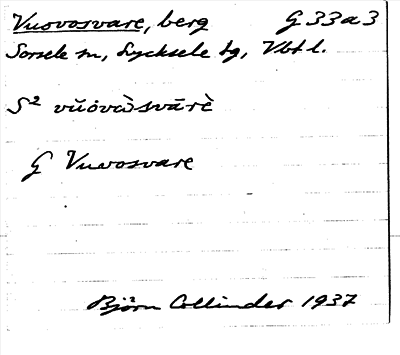 Vuovosvare, berg G 33 a 3
Sorsele sn, Lycksele tg, Vbtl.
S² vŭòvὼsvārὲ
G Vuovosvare
Björn Collinder 1937